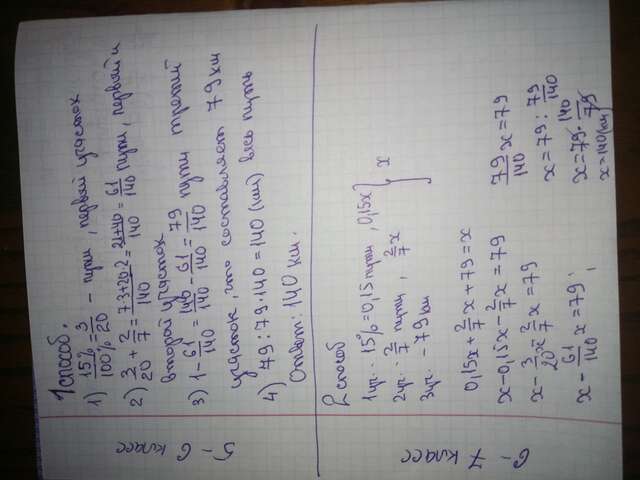 5-6 класс
1 способ.
1) 15%/100% = 3/20 - пути, первый участок
2) 3/20 + 2/7 = (7·3+20·2)/140 = (21+40)/140 = 61/140 пути, первый и
второй участок
3) 1 - 61/140 = 140/140 - 61/140 = 79/140 пути третий
участок, что составляет 79 км
4) 79 : 79 · 140 = 140 (км) весь путь
Ответ: 140 км.
6-7 класс
2 способ
1 уч. - 15% = 0,15 пути, 0,15x
2 уч. - 2/7 пути, 2/7 x
3 уч. - 79 км
} x
0,15x + 2/7 x + 79 = x
x - 0,15x - 2/7 x = 79
x - 3/20 x - 2/7 x = 79
x - 61/140 x = 79;
79/140 x = 79
x = 79 : 79/140
x = 79 · 140/79
x = 140 (км)